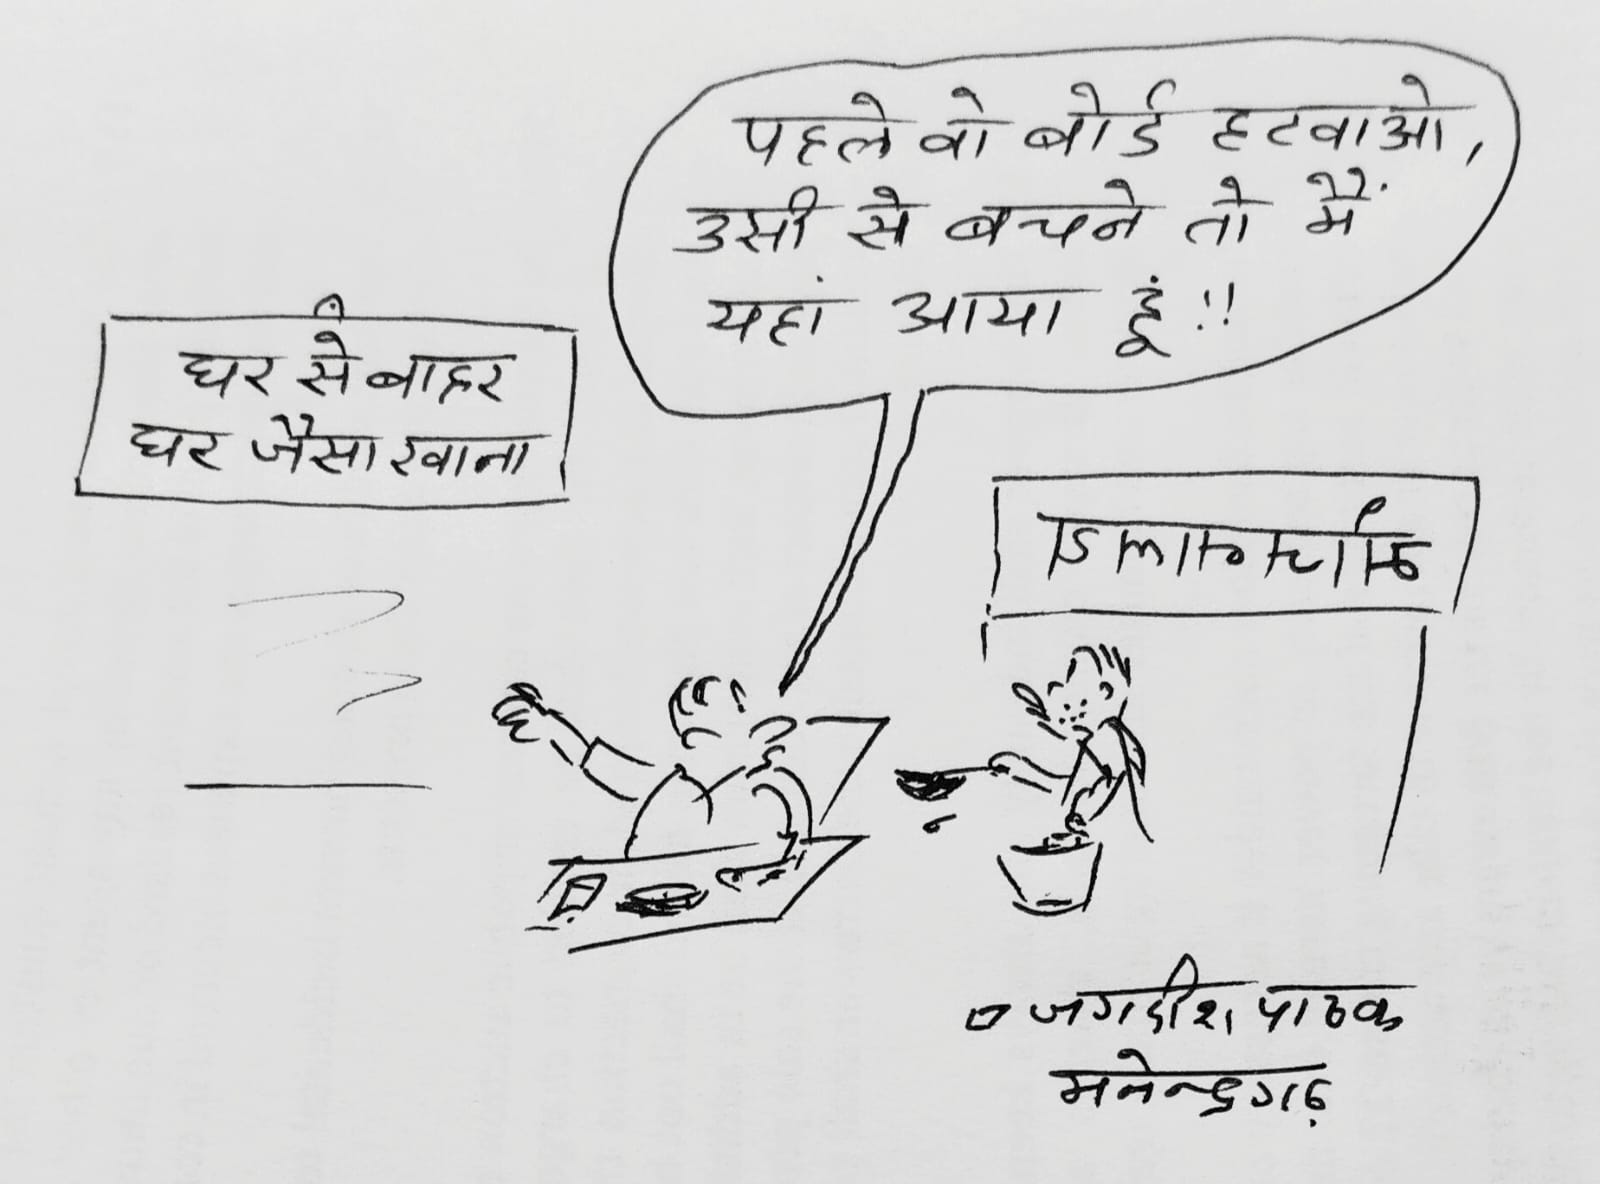 पहले वो बोर्ड हटवाओ,
उसी से बचने तो मैं
यहां आया हूं !!
घर से बाहर
घर जैसा खाना
जगदीश पाठक
मनेन्द्रगढ़